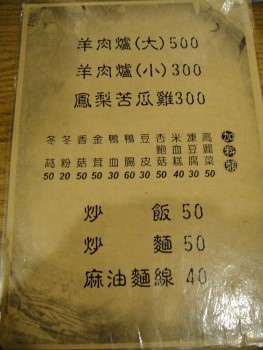 羊肉爐(大)500
羊肉爐(小)300
鳳梨苦瓜雞300
加料類
高麗菜 50
凍豆腐 30
米血糕 40
杏鮑菇 50
豆皮 50
鴨腸 50
鴨血 30
金茸 50
香菇 50
冬粉 20
冬蒿 50
炒飯 50
炒麵 50
麻油麵線 40